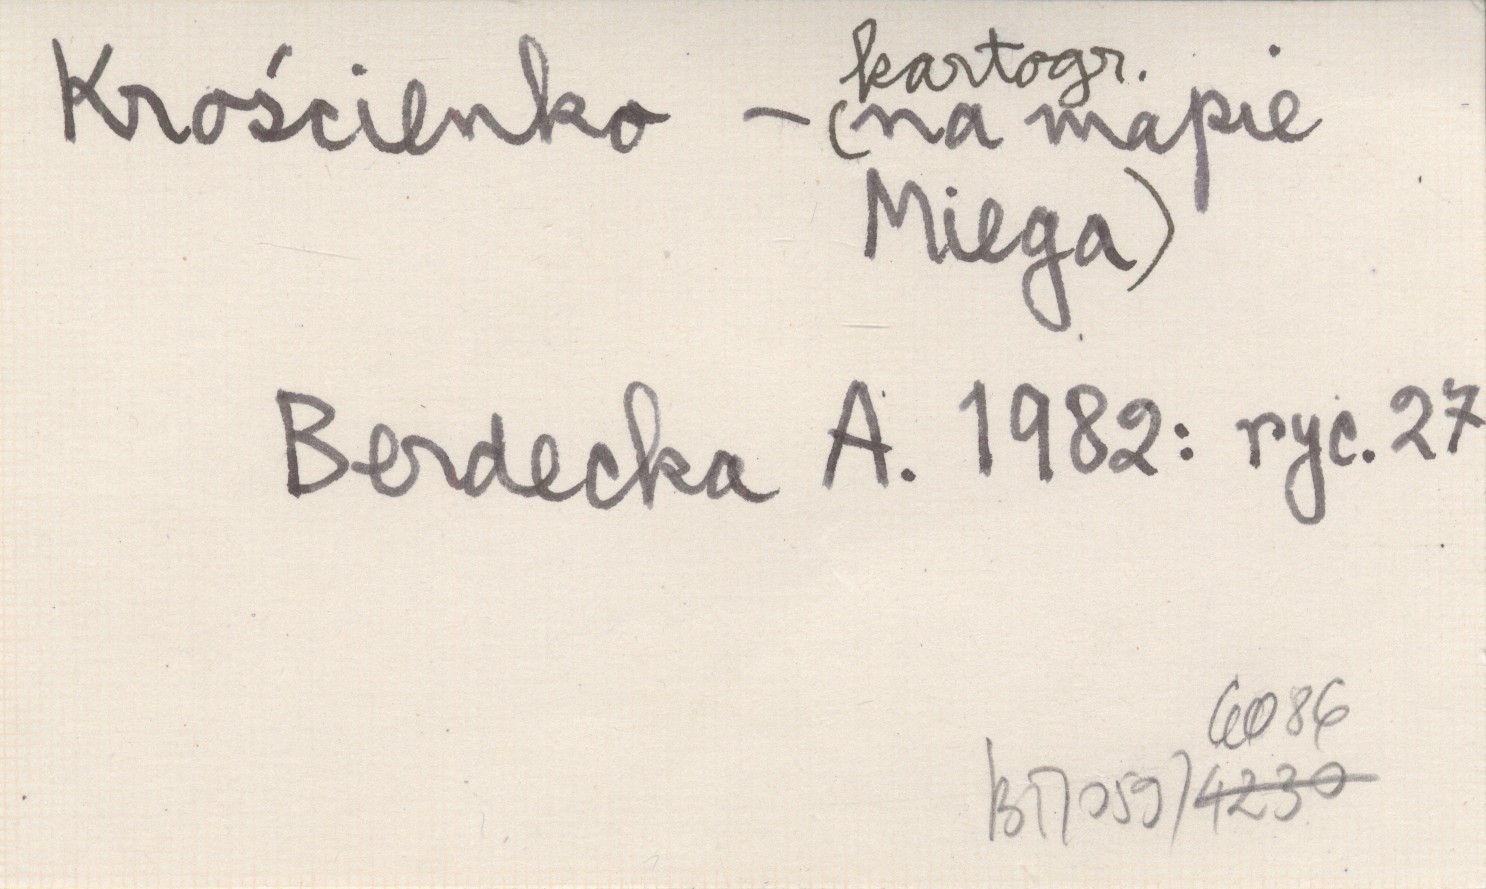 Krościenko – kartogr.
(na mapie
Miega)
Berdecka A. 1982: ryc. 27
6086
4230